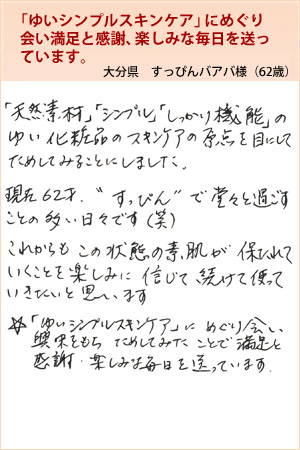 「ゆいシンプルスキンケア」にめぐり
会い満足と感謝、楽しみな毎日を送っ
ています。
大分県　すっぴんバアバ様（62歳）
「天然素材」「シンプル」「しっかり機能」の
ゆい化粧品のスキンケアの原点を目にして
ためしてみることにしました。
現在62才、“すっぴん”で堂々と過ごす
ことの多い日々です（笑）
これからもこの状態の素肌が保たれて
いくことを楽しみに信じて、続けて使って
いきたいと思います
☆「ゆいシンプルスキンケア」にめぐり会い、
興味をもちためしてみたことで満足と
感謝・楽しみな毎日を送っています。